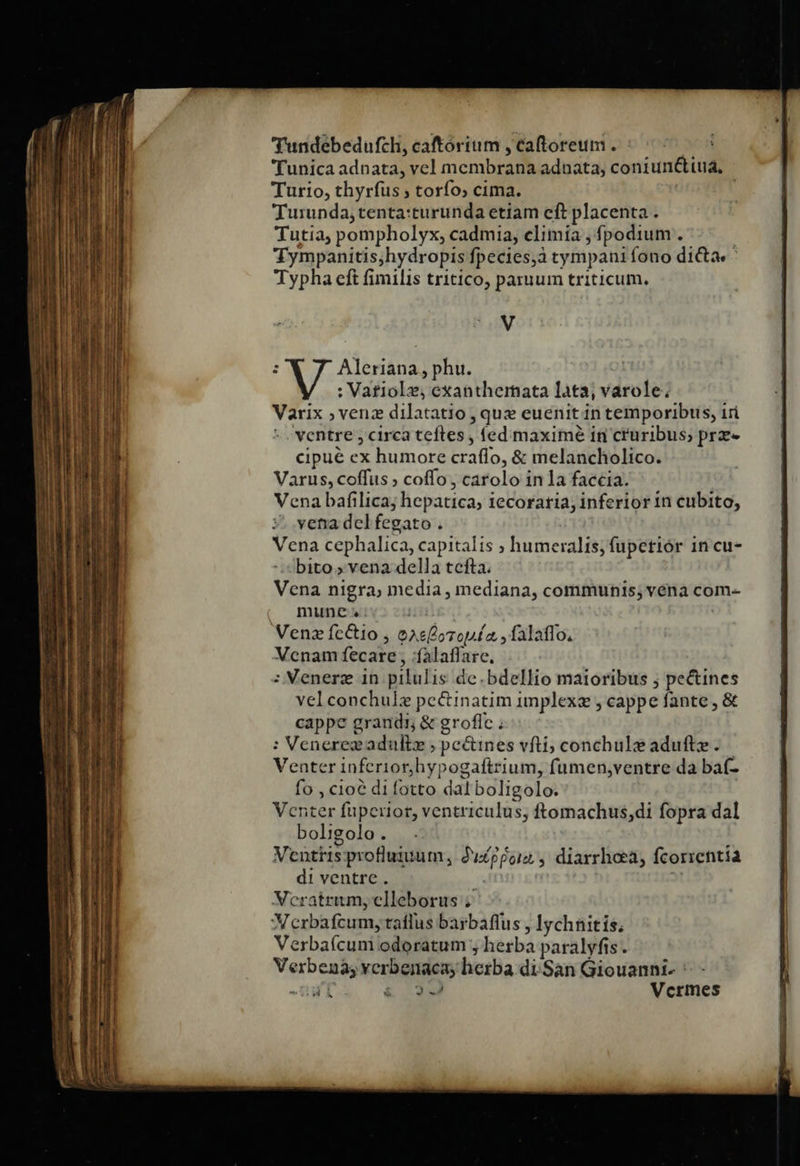 Tundebeduſch, caſtorium, caſtoreum.
Tunica adnata, vel membrana adnata, coniunctiua,
Turio, thyrſus, torſo, cima.
Turunda, tenta: turunda etiam eſt placenta.
Tutia, pompholyx, cadmia, climia, ſpodium.
Tympanitis, hydropis ſpecies, à tympani ſono dicta.
Typha eſt ſimilis tritico, paruum triticum.
V
VAleriana, phu.
Variolæ, exanthemata lata, varole.
Varix, venæ dilatatio, quæ euenit in temporibus, in
ventre, circa teſtes, ſed maximè in cruribus, præ-
cipuè ex humore craſſo, & melancholico.
Varus, coſſus, coſſo, carolo in la faccia.
Vena baſilica, hepatica, iecoraria, inferior in cubito,
vena del fegato.
Vena cephalica, capitalis, humeralis, ſuperior in cu-
bito, vena della teſta.
Vena nigra, media, mediana, communis, vena com-
mune.
Venæ ſectio, φλεβοτομία, ſalaſſo.
Venam ſecare, ſalaſſare,
Veneræ in pilulis de bdellio maioribus, pectines
vel conchulæ pectinatim implexæ, cappe ſante, &
cappe grandi, & groſſe.
Venereæ adultæ, pectines vſti, conchulæ aduſtæ.
Venter inferior, hypogaſtrium, ſumen, ventre da baſ-
ſo, cioè di ſotto dal boligolo.
Venter ſuperior, ventriculus, ſtomachus, di ſopra dal
boligolo.
Ventris profluuium, διάῤῥοια, diarrhœa, ſcorrentia
di ventre.
Veratrum, elleborus.
Verbaſcum, taſſus barbaſſus, lychnitis.
Verbaſcum odoratum, herba paralyſis.
Verbena, verbenaca, herba di San Giouanni.
Vermes